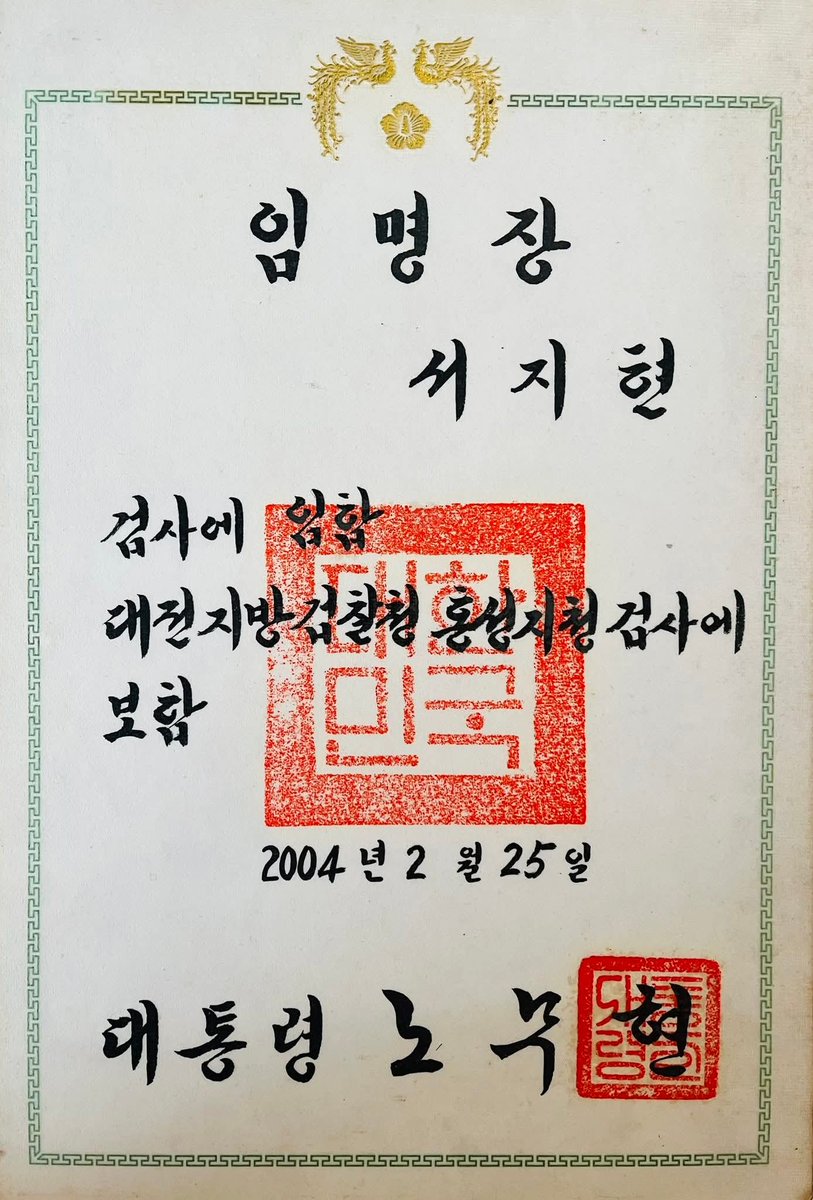 임명장
서지현
검사에 임함
대전지방검찰청 홍성지청 검사에
보함
대한
민국
2004년 2월 25일
대통령 노무현